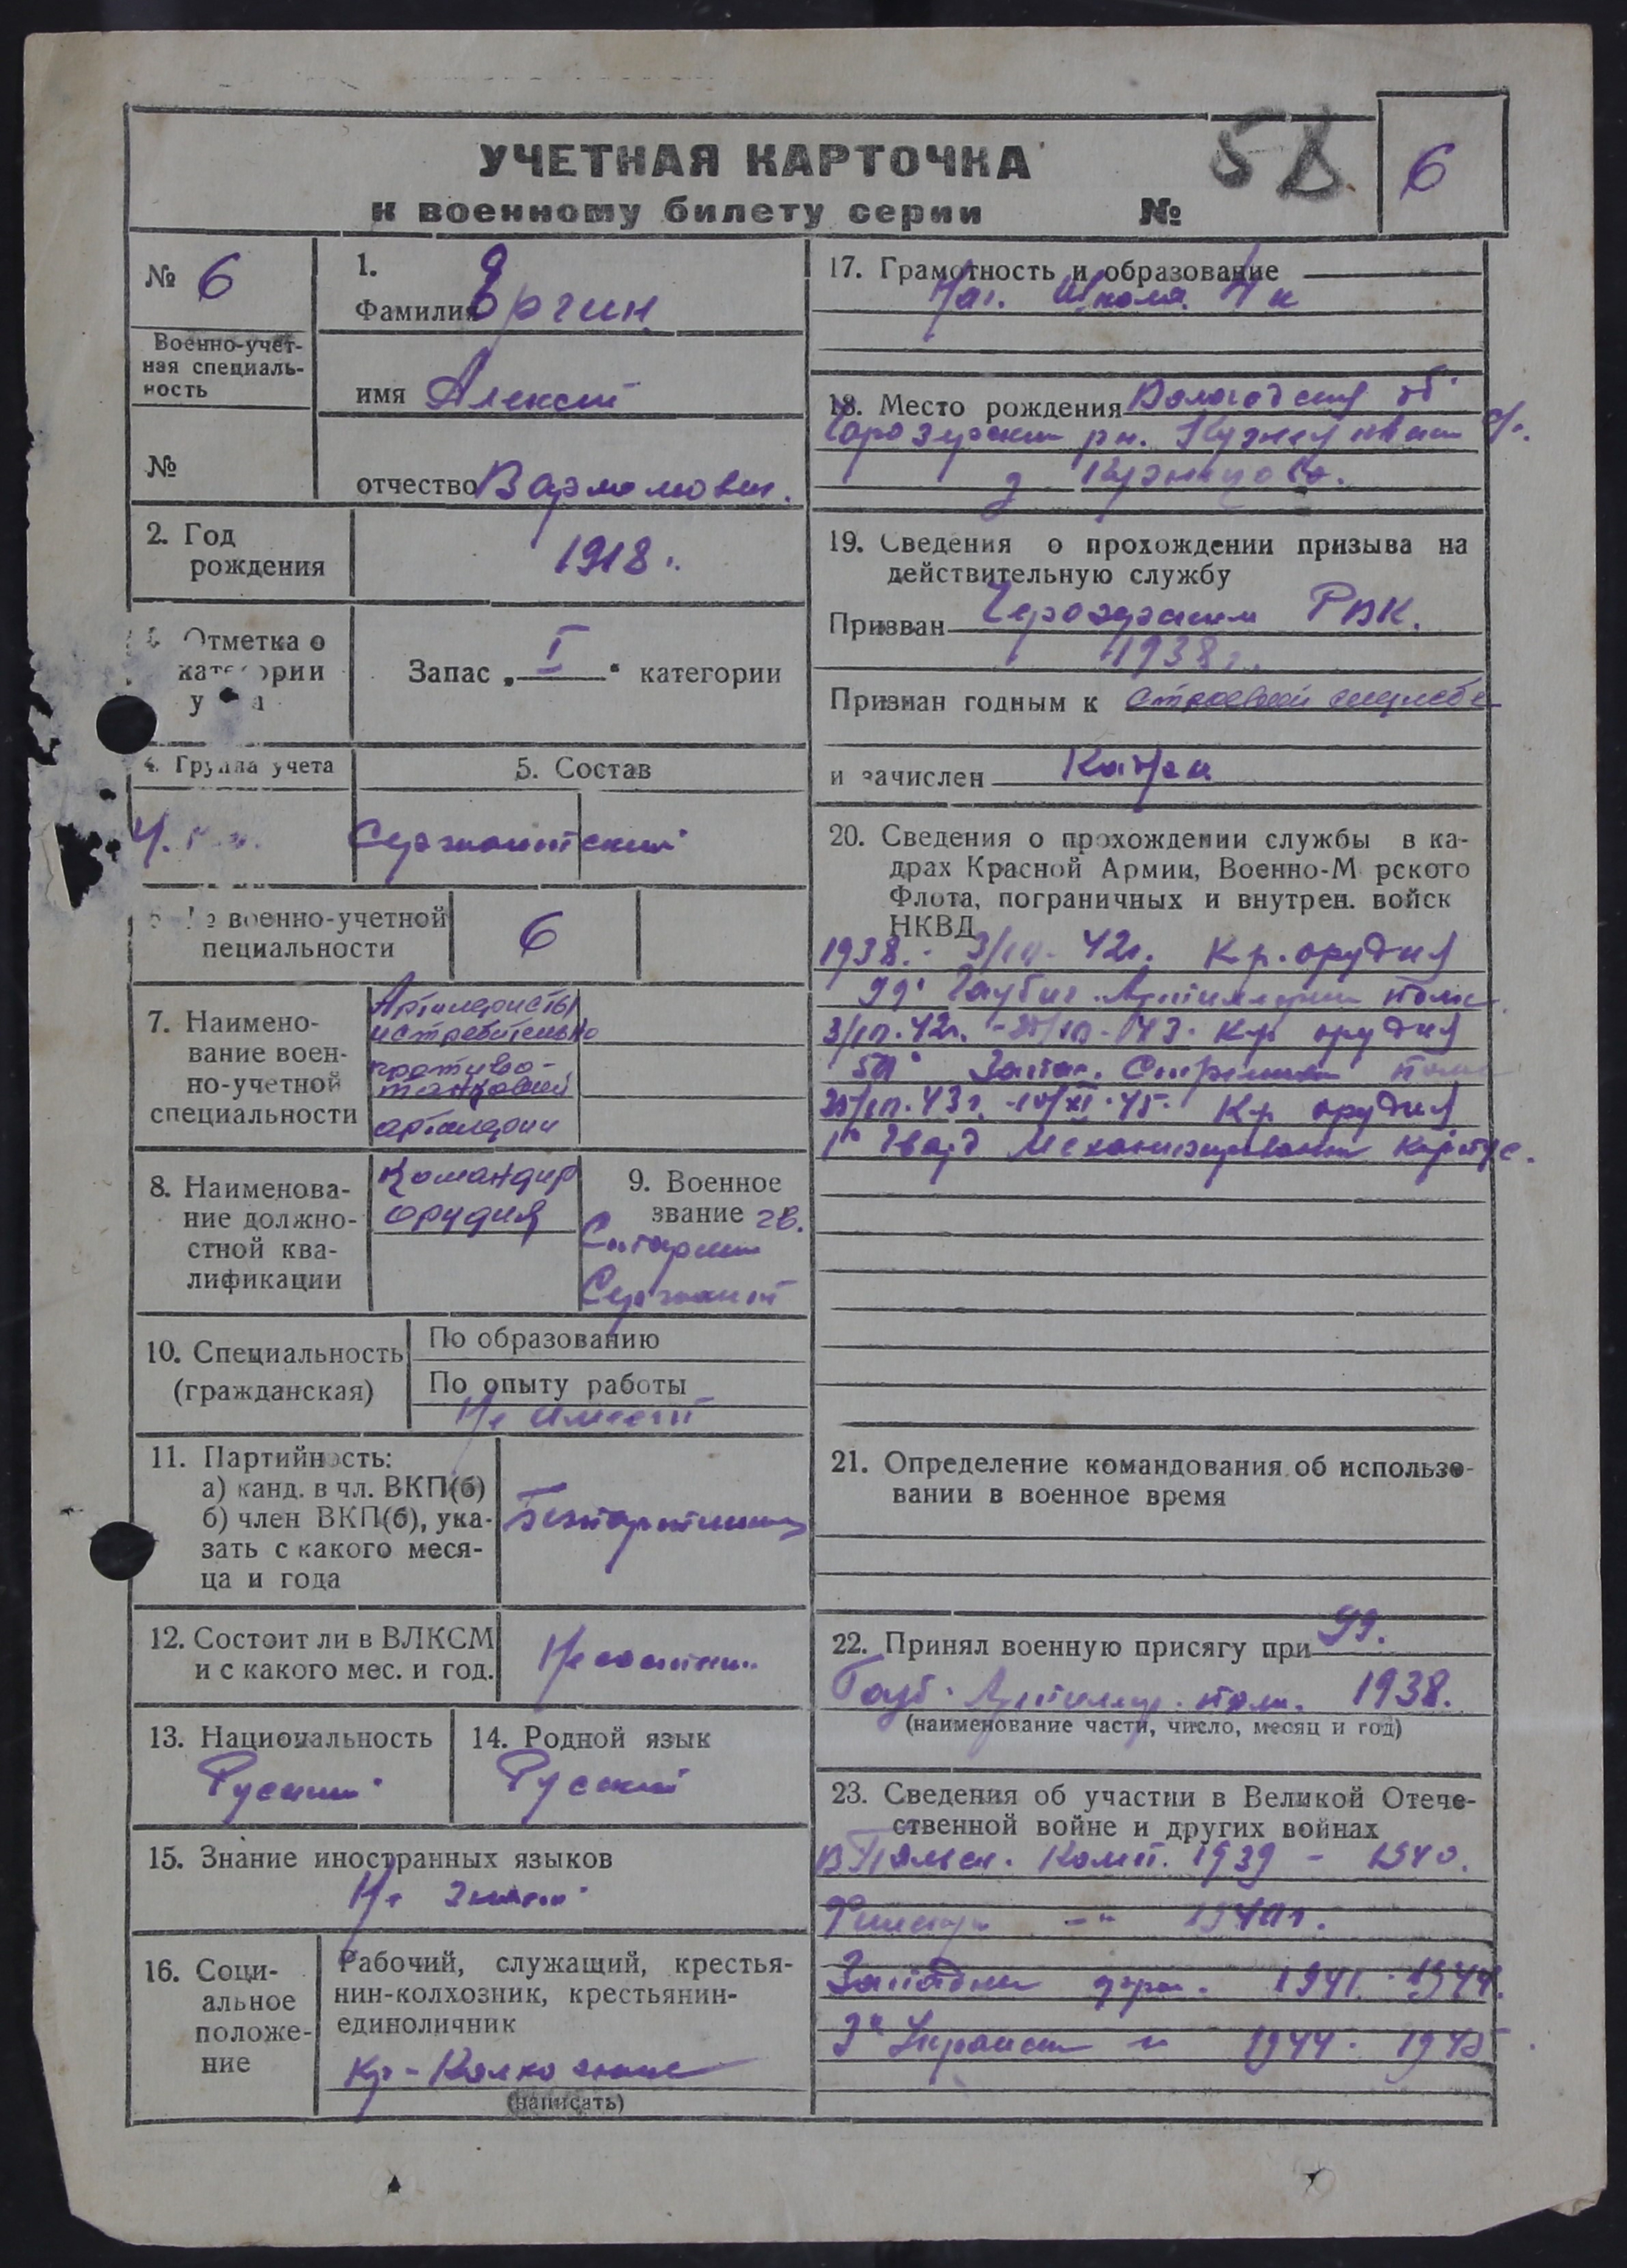 УЧЕТНАЯ КАРТОЧКА
к военному билету серии №
58
6
№ 6
Военно-учет-
ная специаль-
ность
№
1.
Фамилия Ергин
имя Алексей
отчество
2. Год
рождения
1918 г.
Отметка о
категории
Запас „ I “ категории
4. Группа учета
5. Состав
Сержантский
военно-учетной
пециальности
6
7. Наимено-
вание воен-
но-учетной
специальности
Артилеристы
истребительно
противо-
танковой
артилерии
8. Наименова-
ние должно-
стной ква-
лификации
Командир
орудия
9. Военное
звание гв.
Старший
Сержант
10. Специальность
(гражданская)
По образованию
По опыту работы
Не имеет
11. Партийность:
а) канд. в чл. ВКП(б)
б) член ВКП(б), ука-
зать с какого меся-
ца и года
Безпартийный
12. Состоит ли в ВЛКСМ
и с какого мес. и год.
Не состоит
13. Национальность
Русский
14. Родной язык
Русский
15. Знание иностранных языков
Не знает
16. Соци-
альное
положе-
ние
Рабочий, служащий, крестья-
нин-колхозник, крестьянин-
единоличник
Кр-Колхозник
(написать)
17. Грамотность и образование
Нач. Школа 4 к
18. Место рождения Вологодская об
Чарозерский рн.
д
19. Сведения о прохождении призыва на
действительную службу
Призван Чарозерским РВК.
1938 г.
Признан годным к строевой службе
и зачислен Кадры
20. Сведения о прохождении службы в ка-
драх Красной Армии, Военно-М рского
Флота, пограничных и внутрен. войск
НКВД
1938 - 42г. Кр. орудия
99 Гаубич. Артиллерий полк
42г. - 43. Кр орудия
Запас. Стрелковый полк
43г. - 10/XI.45. Кр орудия
1й Гвард Механизированный Корпус.
21. Определение командования об использо-
вании в военное время
22. Принял военную присягу при 99.
Гауб. Артиллер. полк. 1938.
(наименование части, число, месяц и год)
23. Сведения об участии в Великой Отече-
ственной войне и других войнах
В Польск. Комп. 1939 - 1940.
Финскую -"- 1940г.
Западный фрон. 1941. 1944.
3й Украинск " 1944. 1945